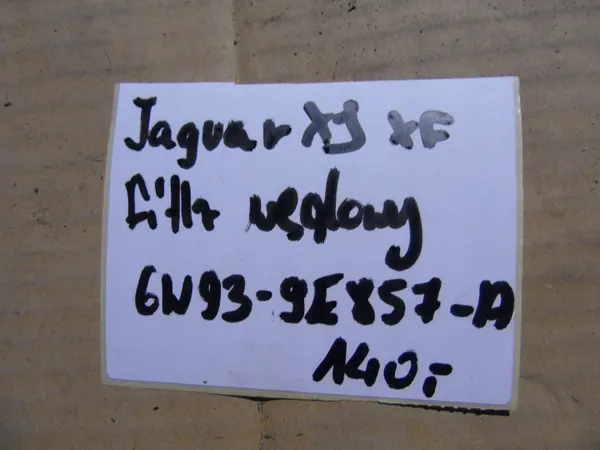 Jaguar XJ XF
Filtr węglowy
6W93-9E857-A
140,-